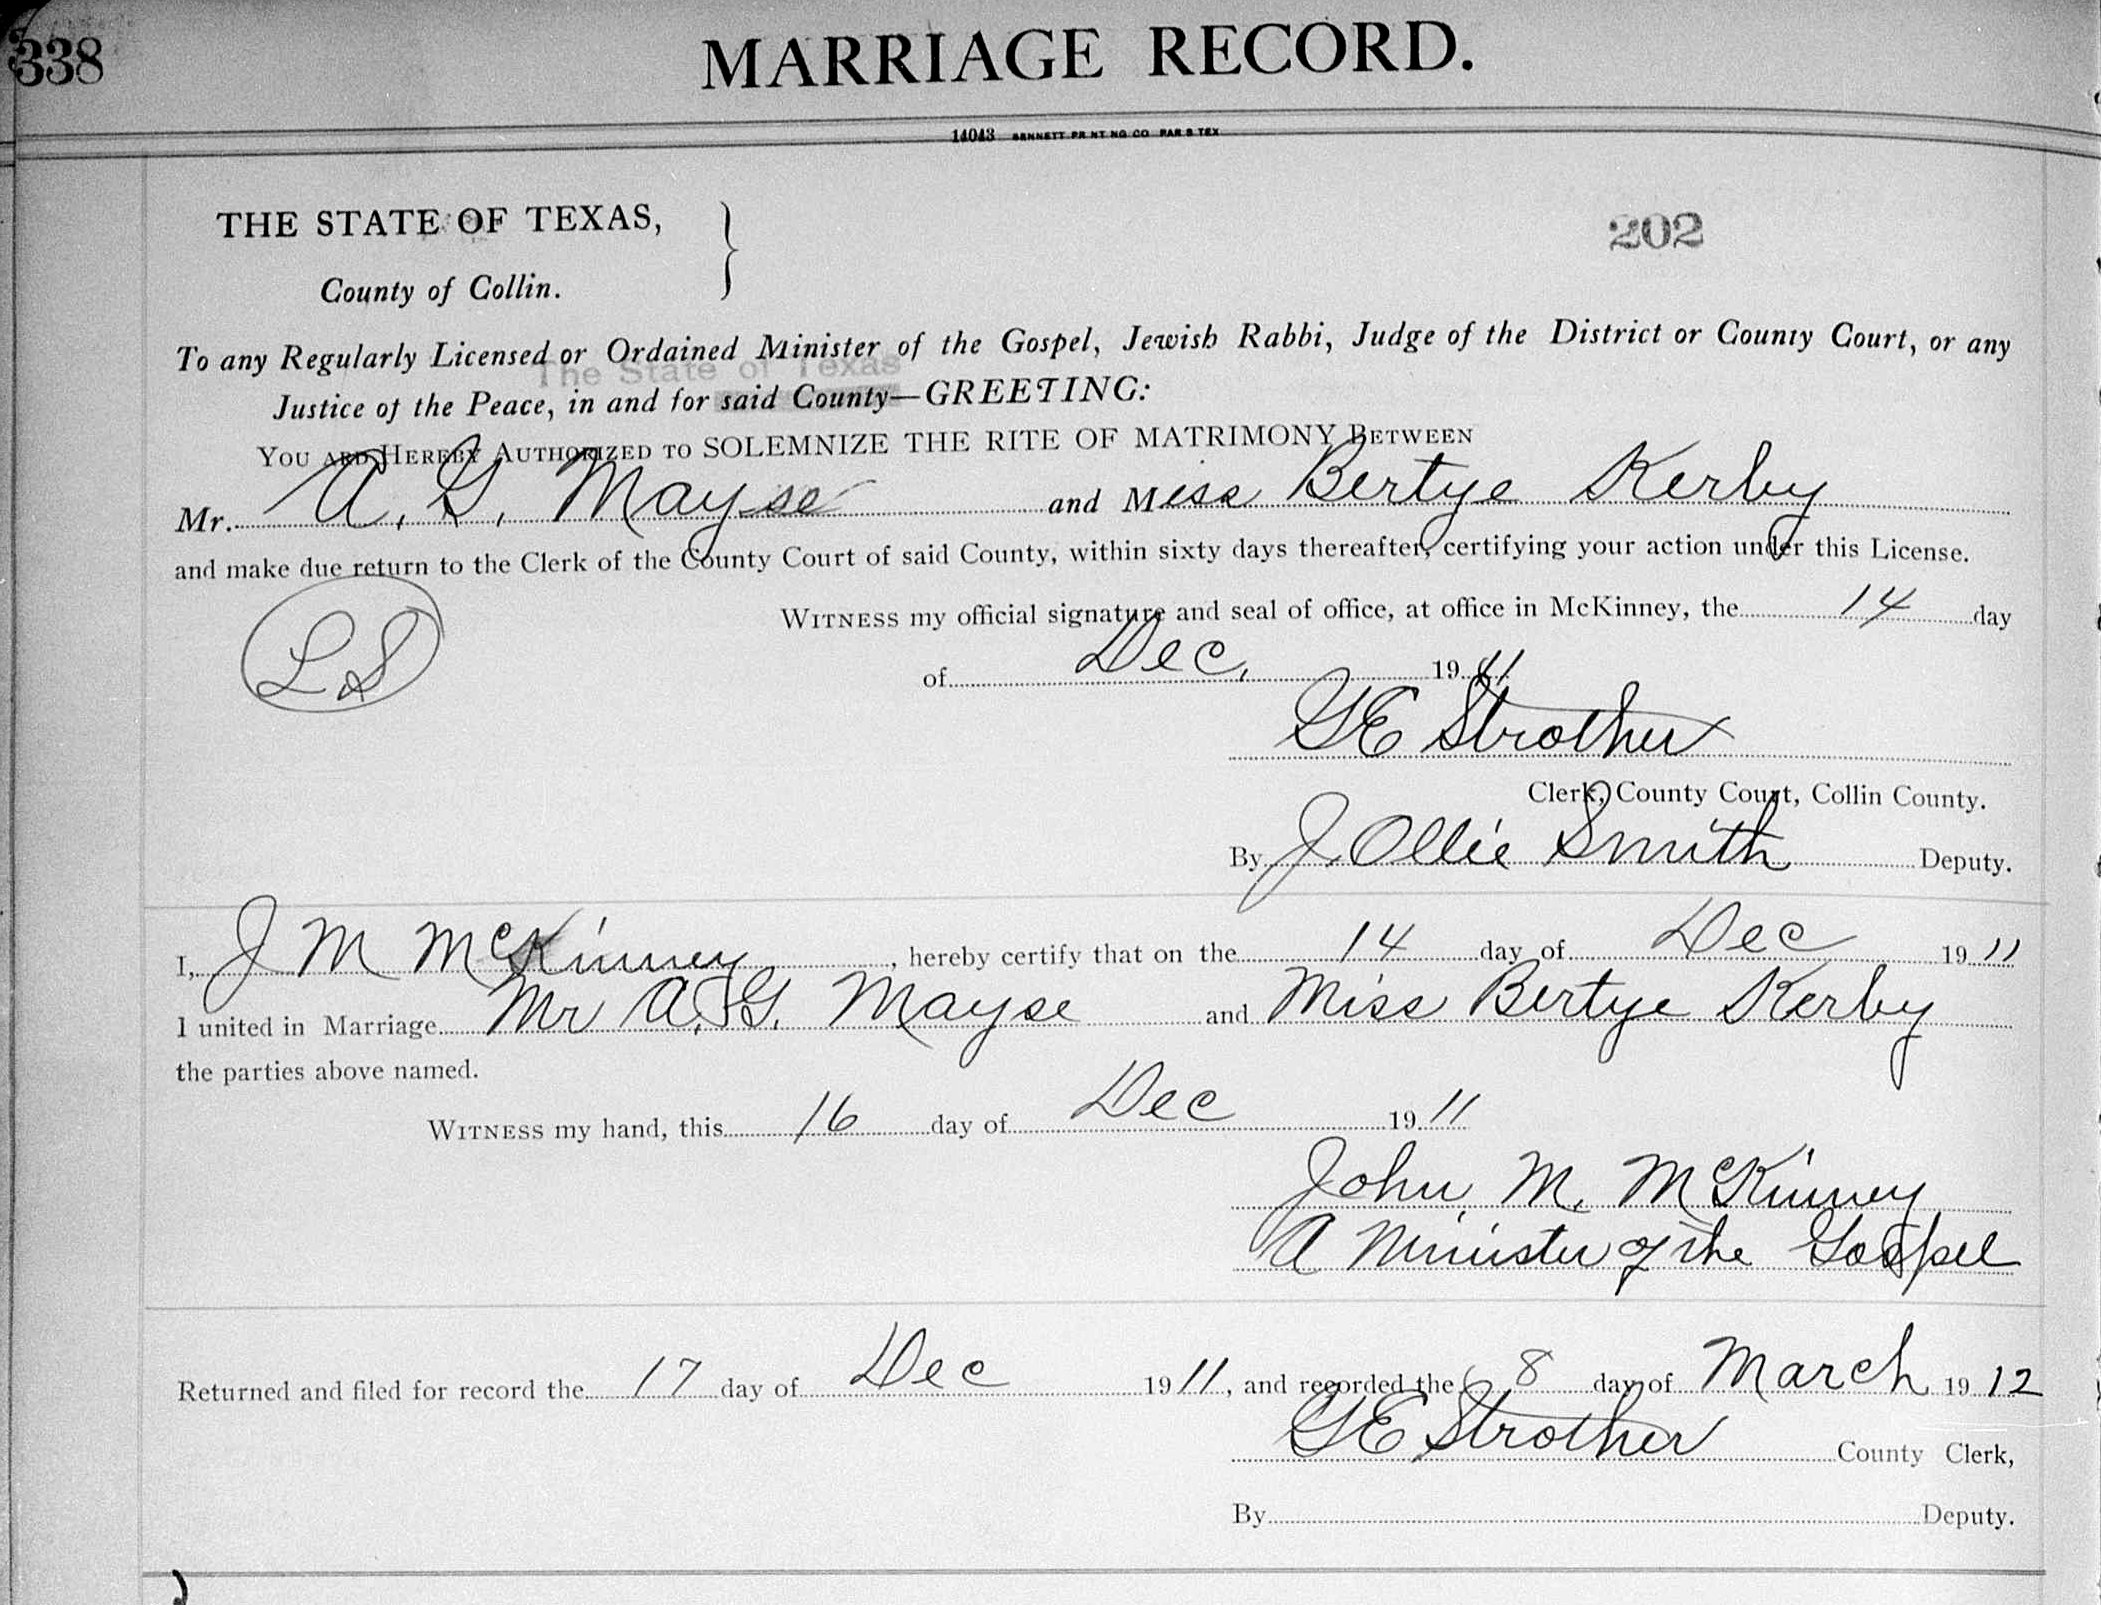 338
MARRIAGE RECORD.
14043 BENNETT PRINTING CO PARIS TEX
THE STATE OF TEXAS,
202
County of Collin.
To any Regularly Licensed or Ordained Minister of the Gospel, Jewish Rabbi, Judge of the District or County Court, or any
The State of Texas
Justice of the Peace, in and for said County—GREETING:
YOU ARE HEREBY AUTHORIZED TO SOLEMNIZE THE RITE OF MATRIMONY BETWEEN
Mr. A. G. Mayse and Miss Bertye Kerby
and make due return to the Clerk of the County Court of said County, within sixty days thereafter, certifying your action under this License.
WITNESS my official signature and seal of office, at office in McKinney, the 14 day
LS
of Dec. 1911
GE Strother
Clerk, County Court, Collin County.
By J. Ollie Smith Deputy.
I, J M McKinney, hereby certify that on the 14 day of Dec 1911
I united in Marriage Mr A. G. Mayse and Miss Bertye Kerby
the parties above named.
WITNESS my hand, this 16 day of Dec 1911
John M. McKinney
A Minister of the Gospel
Returned and filed for record the 17 day of Dec 1911, and recorded the 8 day of March 1912
GE Strother County Clerk,
By Deputy.